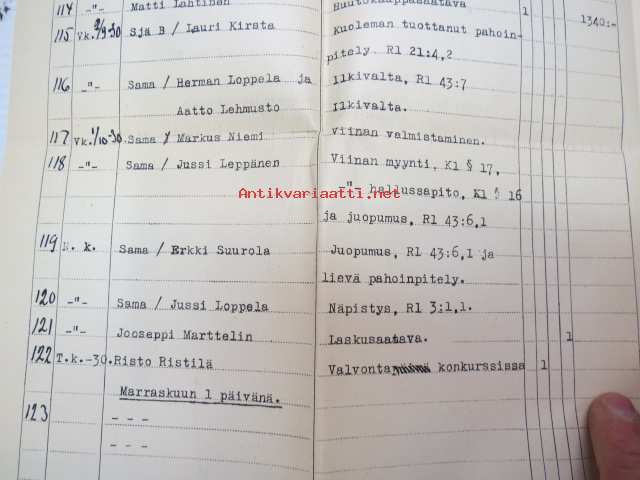 114 -"- Matti Lahtinen Huutokauppasaatava 1 1340:-
115 Vk. 2/9-30 Sjä B / Lauri Kirsta Kuoleman tuottanut pahoin-
pitely Rl 21:4,2
116 -"- Sama / Herman Loppela ja Ilkivalta, Rl 43:7
Aatto Lehmusto Ilkivalta.
117 Vk. 1/10-30. Sama / Markus Niemi Viinan valmistaminen.
118 -"- Sama / Jussi Leppänen Viinan myynti, Kl § 17,
-"- hallussapito, Kl § 16
Antikvariaatti.net
ja juopumus, Rl 43:6,1
119 N. k. Sama / Erkki Suurola Juopumus, Rl 43:6,1 ja
lievä pahoinpitely.
120 -"- Sama / Jussi Loppela Näpistys, Rl 3:1,1.
121 -"- Jooseppi Marttelin Laskusaatava. 1
122 T.k.-30. Risto Ristilä Valvonta konkurssissa 1
Marraskuun 1 päivänä.
123 - - -
- - -